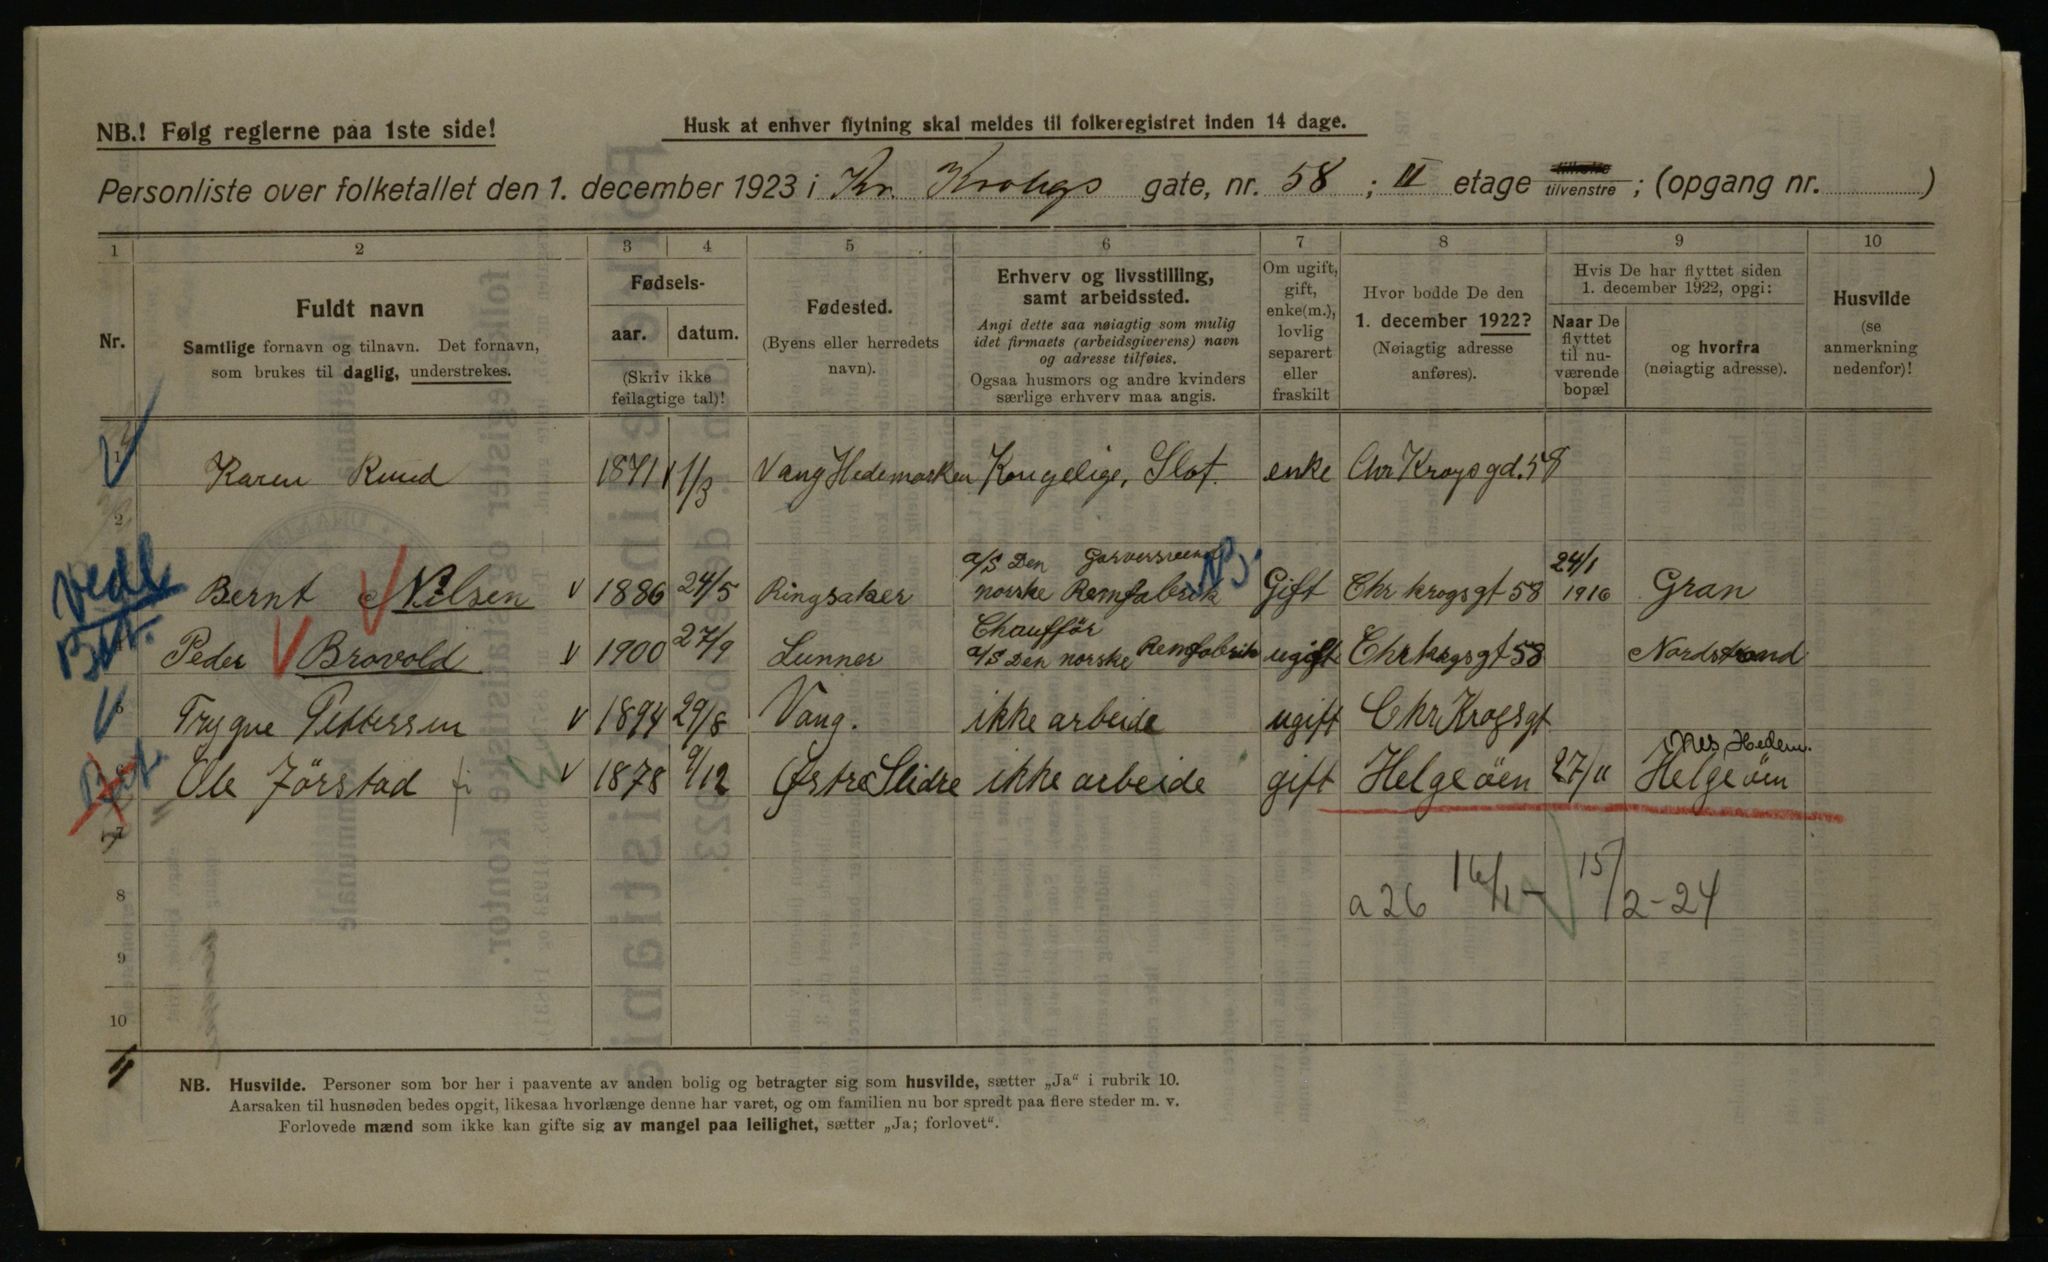 NB.! Følg reglerne paa 1ste side!
Husk at enhver flytning skal meldes til folkeregistret inden 14 dage.
Personliste over folketallet den 1. december 1923 i Kr. Krohgs gate, nr. 58 ; II etage tilvenstre ; (opgang nr. )
1 2 3 4 5 6 7 8 9 10
Nr.
Fuldt navn
Samtlige fornavn og tilnavn. Det fornavn,
som brukes til daglig, understrekes.
Fødsels-
aar. datum.
(Skriv ikke
feilagtige tal)!
Fødested.
(Byens eller herredets
navn).
Erhverv og livsstilling,
samt arbeidssted.
Angi dette saa nøiagtig som mulig
idet firmaets (arbeidsgiverens) navn
og adresse tilføies.
Ogsaa husmors og andre kvinders
særlige erhverv maa angis.
Om ugift,
gift,
enke(m.),
lovlig
separert
eller
fraskilt
Hvor bodde De den
1. december 1922?
(Nøiagtig adresse
anføres).
Hvis De har flyttet siden
1. december 1922, opgi:
Naar De
flyttet
til nu-
værende
bopæl
og hvorfra
(nøiagtig adresse).
Husvilde
(se
anmerkning
nedenfor)!
1 Karen Ruud 1871 1/3 Vang Hedemarken Kongelige, Slot. enke Chr Krogs gd. 58
2
Vedl. Bernt Nilsen v 1886 24/5 Ringsaker A/S Den norske Remfabrik NB. Gift Chr krogsgt 58 24/1 1916 Gran
Bet. Peder Brovold v 1900 27/9 Lunner Chauffør A/S Den norske Remfabrik ugift Chr krogsgt 58 Nordstrand
Trygve Pettersen v 1894 29/8 Vang. ikke arbeide ugift Chr Krogsgt
Bet. Ole Jørstad v 1878 9/12 Østre Slidre ikke arbeide gift Helgeöen 27/11 Nes Hedem. Helgeöen
7
8 a 26 16/1 - 15/2-24
9
10
NB. Husvilde. Personer som bor her i paavente av anden bolig og betragter sig som husvilde, sætter „Ja“ i rubrik 10.
Aarsaken til husnøden bedes opgit, likesaa hvorlænge denne har varet, og om familien nu bor spredt paa flere steder m. v.
Forlovede mænd som ikke kan gifte sig av mangel paa leilighet, sætter „Ja; forlovet“.